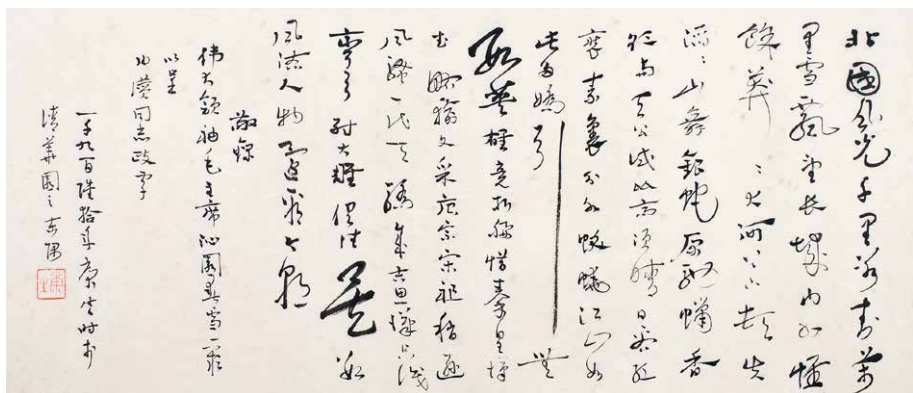 北國風光千里冰封萬
里雪飄望長城內外惟
餘莽々大河上下頓失
滔々山舞銀蛇原馳蠟象
欲與天公試比高須晴日看紅
裝素裹分外妖嬈江山如
此多嬌引無
數英雄競折腰惜秦皇漢
武略輸文采唐宗宋祖稍遜
風騷一代天驕成吉思漢只識
彎弓射大雕俱往矣數
風流人物還看今朝
敬錄
伟大領袖毛主席沁園春雪一闋
以呈
同志政字
一千九百陸拾年康生时於
清華園之東隅